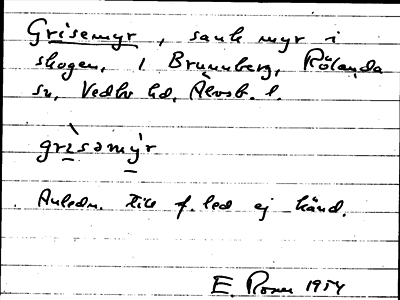 Grisemyr, sank myr i
skogen, 1 Brunnberg, Rölanda
sn, Vedbo hd, Älvsb. l.
grìsəmýr
Anledn. till f. led ej känd.
E. Rosen 1954